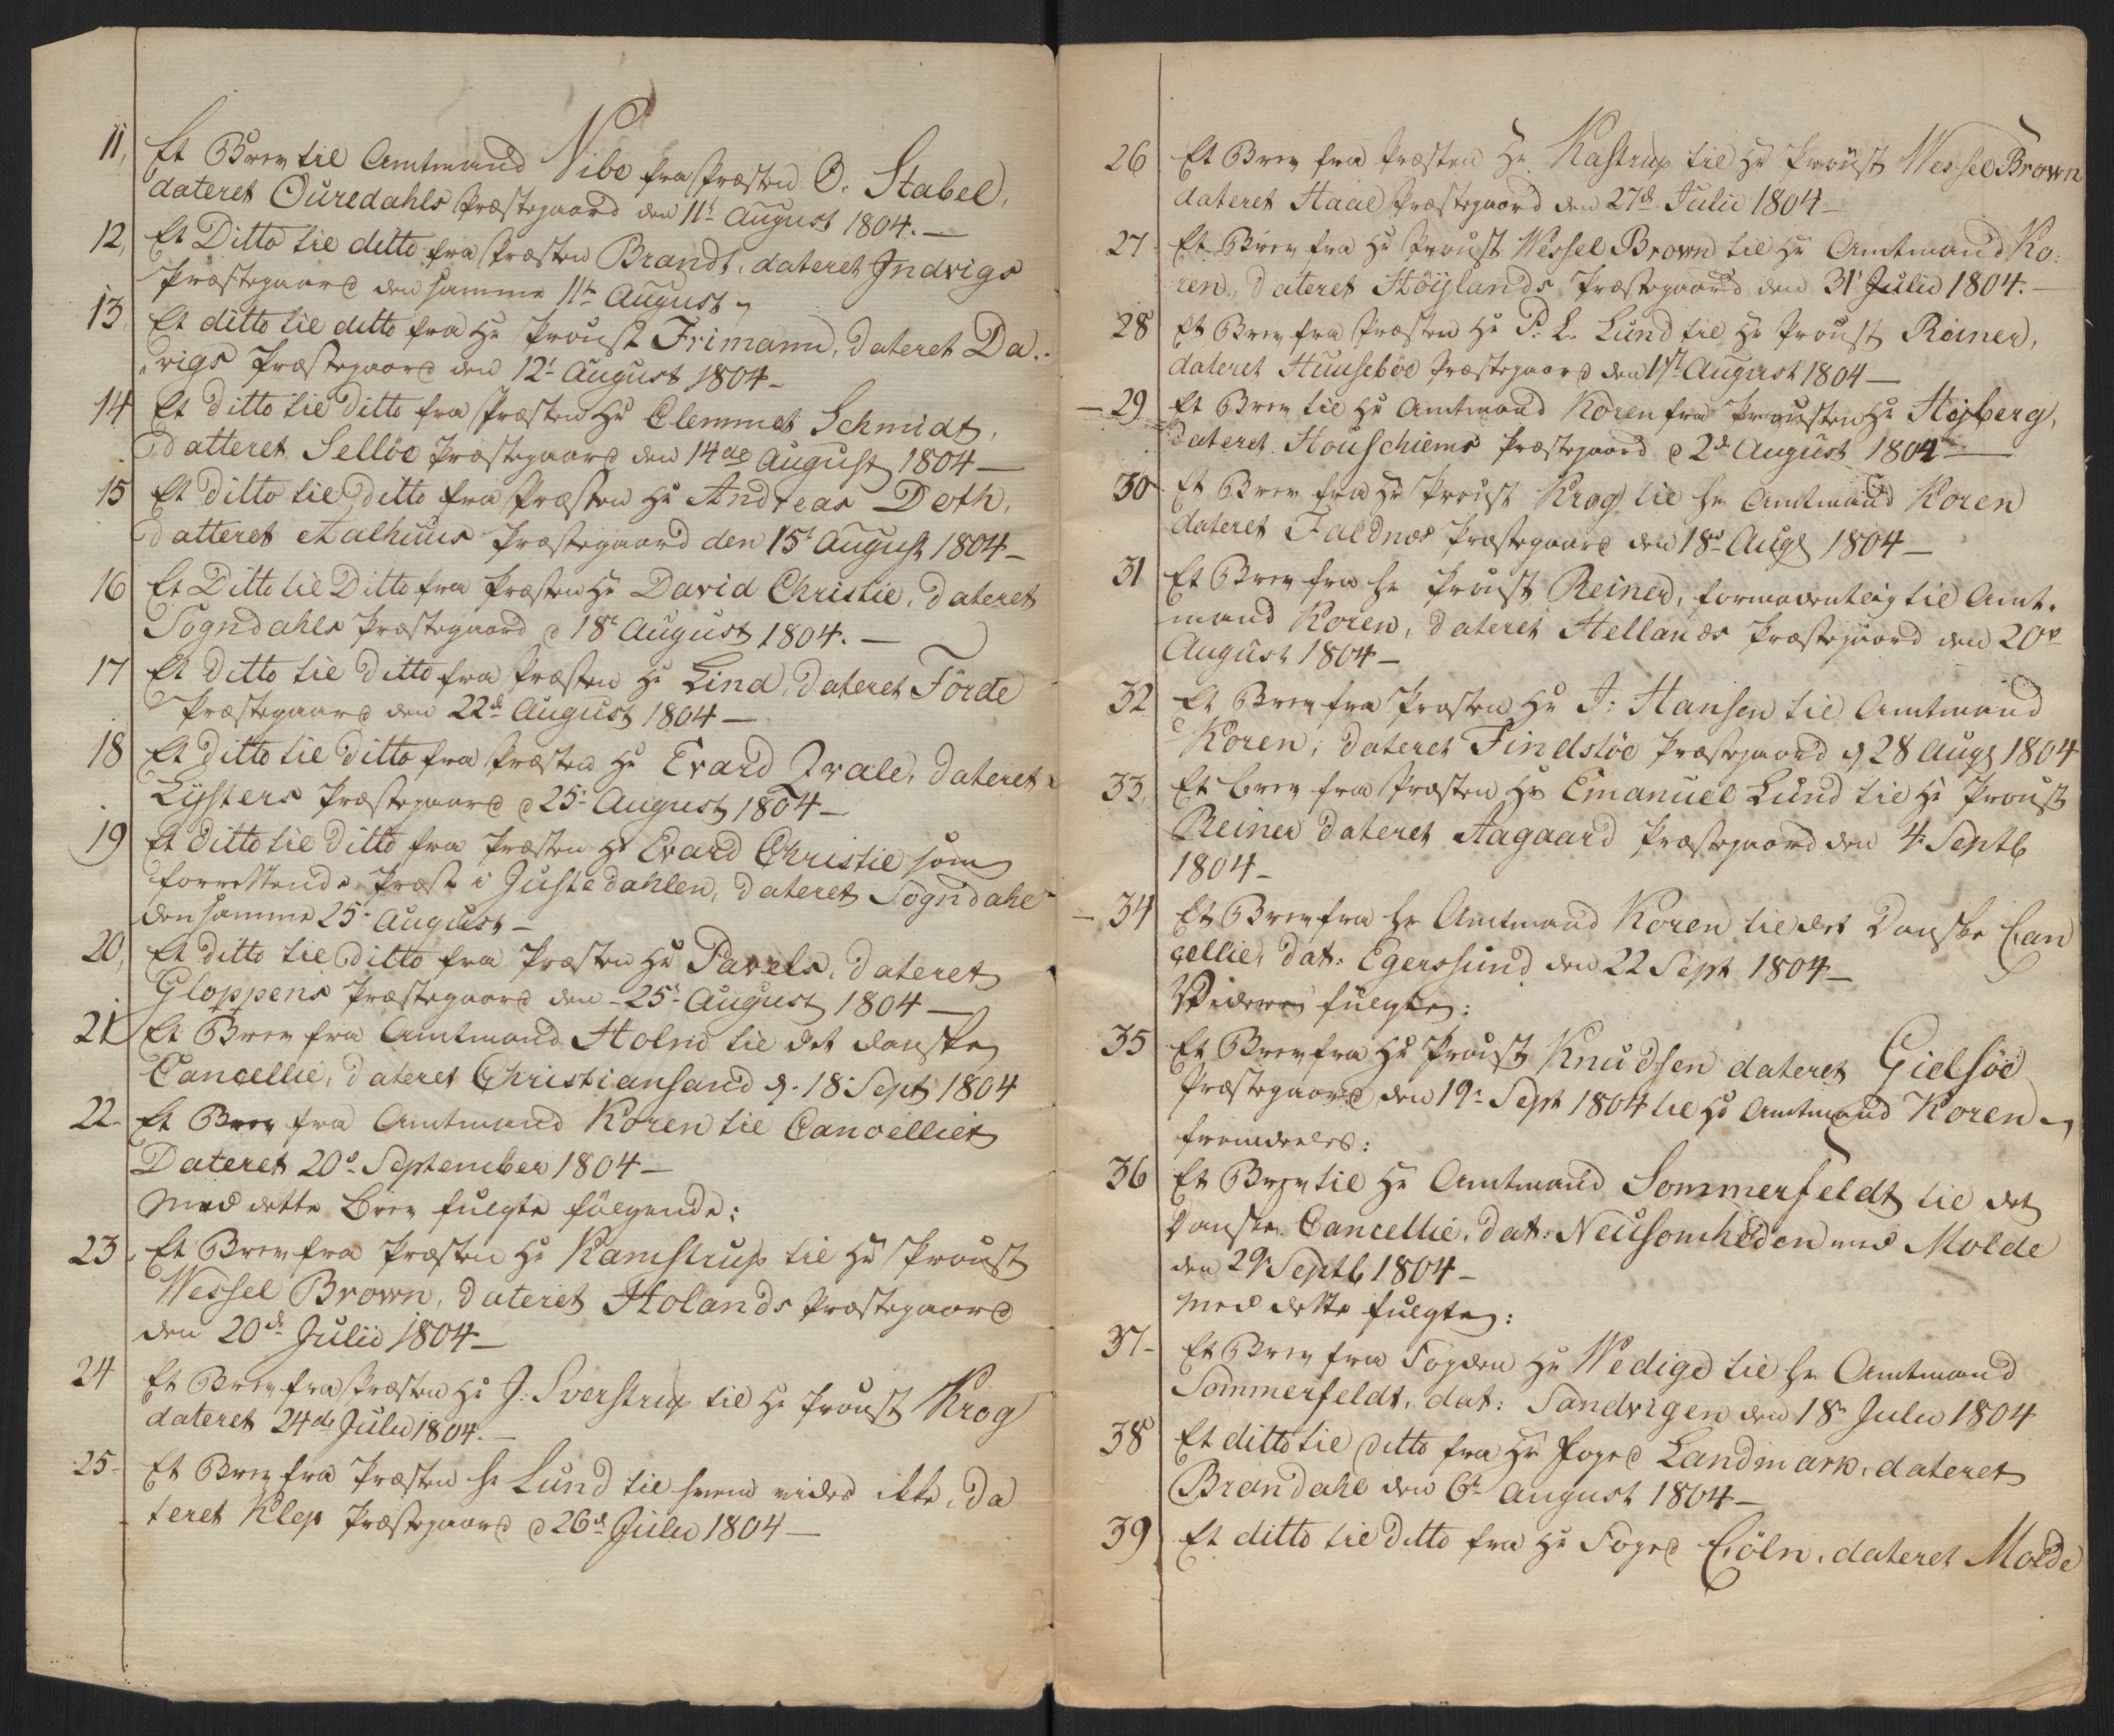 11, Et Brev til Amtmand Vibe fra Præsten O. Stabel,
dateret Ouredahls Præstegaard den 11t August 1804. —
12, Et Ditto til ditto fra Præsten Brandt, dateret Indvigs
Præstegaard den samme 11te August
13, Et ditto til ditto fra Hr Proust Frimann, dateret Da-
vigs Præstegaard den 12t August 1804 —
14 Et ditto til Ditto fra Præsten Hr Clemmet Schmidt,
datteret Selløe Præstegaard den 14de August 1804 —
15 Et ditto til ditto fra Præsten Hr Andreas Doth,
datteret Aalhuus Præstegaard den 15t August 1804 —
16 Et Ditto til Ditto fra Præsten Hr David Christie, dateret
Sogndahls Præstegaard d 18t August 1804. —
17 Et ditto til ditto fra Præsten Hr Lind, dateret Førde
Præstegaard den 22d August 1804 —
18 Et ditto til ditto fra Præsten Hr Evard Qvale, dateret
Lysters Præstegaard d 25t August 1804 —
19 Et ditto til ditto fra Præsten Hr Evard Christie som
forrettende Præst i Justedahlen, dateret Sogndahl
den samme 25t August —
20, Et ditto til ditto fra Præsten Hr Pavels, dateret
Gloppens Præstegaard den 25t August 1804 —
21 Et Brev fra Amtmand Holm til det danske
Cancellie, dateret Christiansand d. 18 Sept 1804
22. Et Brev fra Amtmand Koren til Cancelliet
Dateret 20d September 1804 —
Med dette Brev fulgte følgende:
23. Et Brev fra Præsten Hr Kamstrup til Hr Proust
Wessel Brown, dateret Holands Præstegaard
den 20de Julii 1804 —
24 Et Brev fra Præsten Hr J. Sverstrup til Hr Proust Krog
dateret 24de Julii 1804. —
25- Et Brev fra Præsten Hr Lund til hvem vides ikke, da
teret Klep Præstegaard d 26d Julii 1804 —
26 Et Brev fra Præsten Hr Kastrup til Hr Proust Wessel Brown
dateret Haae Præstegaard den 27d Julii 1804 —
27 Et Brev fra Hr Proust Wessel Brown til Hr Amtmand Ko:
ren, dateret Høijlands Præstegaard den 31t Julii 1804. —
28 Et Brev fra Præsten Hr P. L. Lund til Hr Proust Reiner,
dateret Huusebøe Præstegaard den August 1804 —
- 29 Et Brev til Hr Amtmand Koren fra Prousten Hr Høyberg,
dateret Houschiems Præstegaard d 2d August 1804 —
30 Et Brev fra Hr Proust Krog til Hr Amtmand Koren
dateret Faldnæs Præstegaard den 18d Augs 1804 —
31 Et Brev fra Hr Proust Reiner, formodentlig til Amt-
mand Koren, dateret Hellands Præstegaard den 20d
August 1804 —
32 Et Brev fra Præsten Hr J: Hansen til Amtmand
Koren, dateret Findsløe Præstegaard d 28 Augs 1804
33, Et brev fra Præsten Hr Emanuel Lund til Hr Proust
Reiner dateret Aagaard Præstegaard den 4. Septb
1804 —
- 34 Et Brev fra Hr Amtmand Koren til det Danske Can
cellie, dat: Egerssund den 22 Sept 1804 —
Videre fulgte:
35 Et Brev fra Hr Proust Knudsen dateret Gielsøe
Præstegaard den 19t Sept 1804 til Hr Amtmand Koren
fremdeles:
36 Et Brev til Hr Amtmand Sommerfeldt til det
Danske Cancellie, dat: Neusomheden ved Molde
den 29 Septb 1804 —
Med dette fulgte:
37- Et Brev fra Fogden Hr Wedige til Hr Amtmand
Sommerfeldt, dat: Sandvigen den 18 Julii 1804
38 Et ditto til ditto fra Hr Foged Landmark, dateret
Brandahl den 6t August 1804 —
39 Et ditto til ditto fra Hr Foged Cöln, dateret Molde